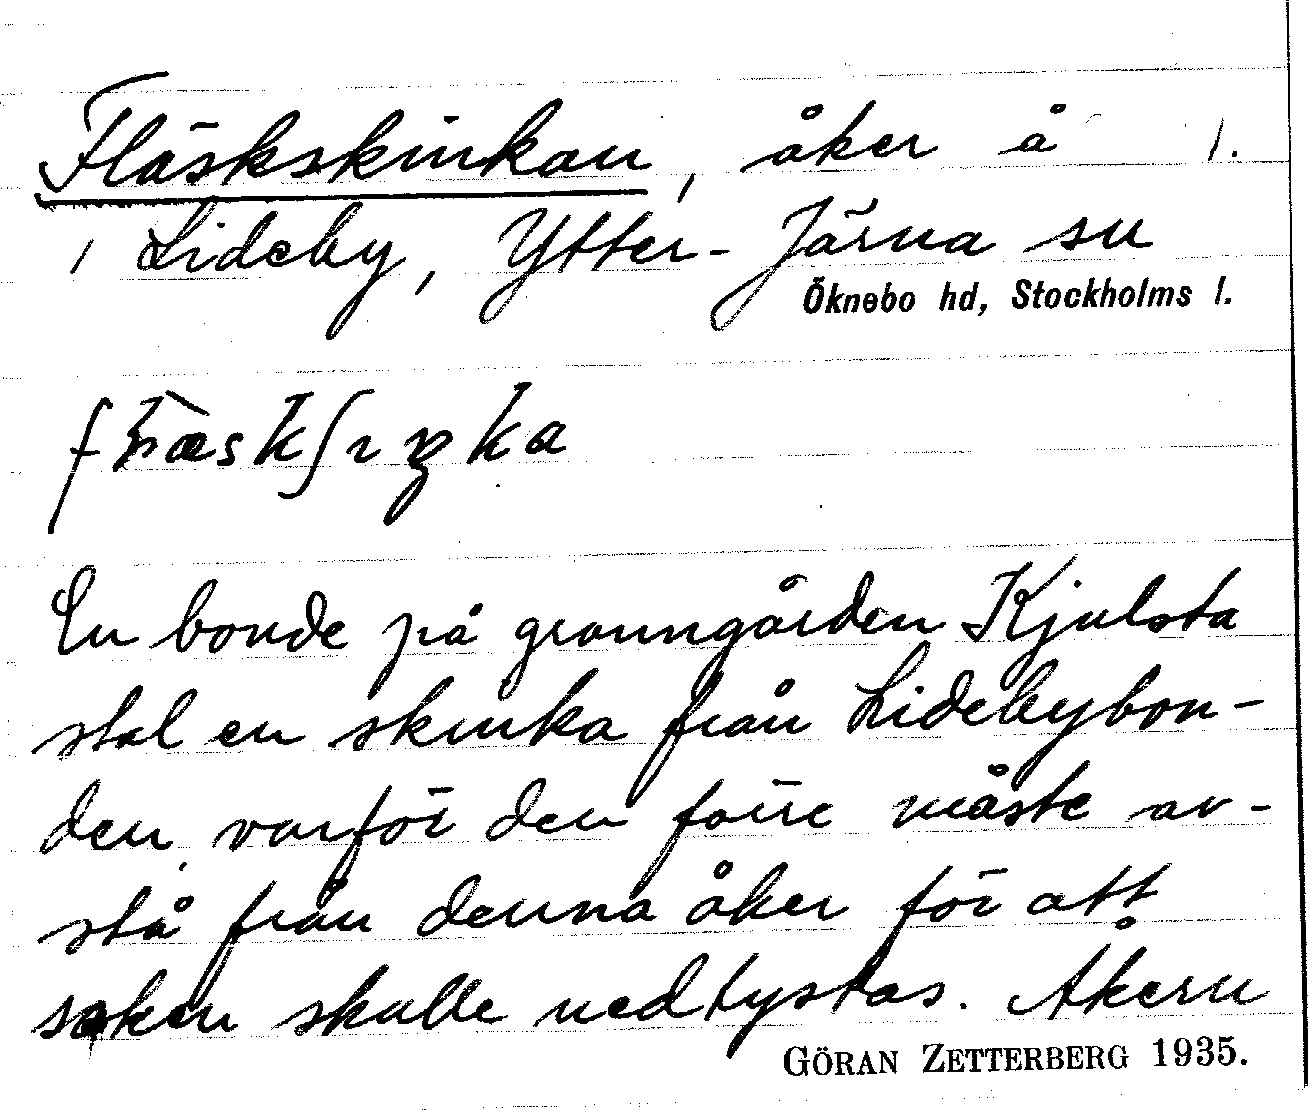 Fläskskinkan, åker å 1.
/ Lideby, Ytter-Järna sn
Öknebo hd, Stockholms l.
En bonde på granngården Kjulsta
stal en skinka från Lidebybon-
den, varför den förre måste av-
stå från denna åker för att
saken skulle nedtystas. Åkern
GÖRAN ZETTERBERG 1935.